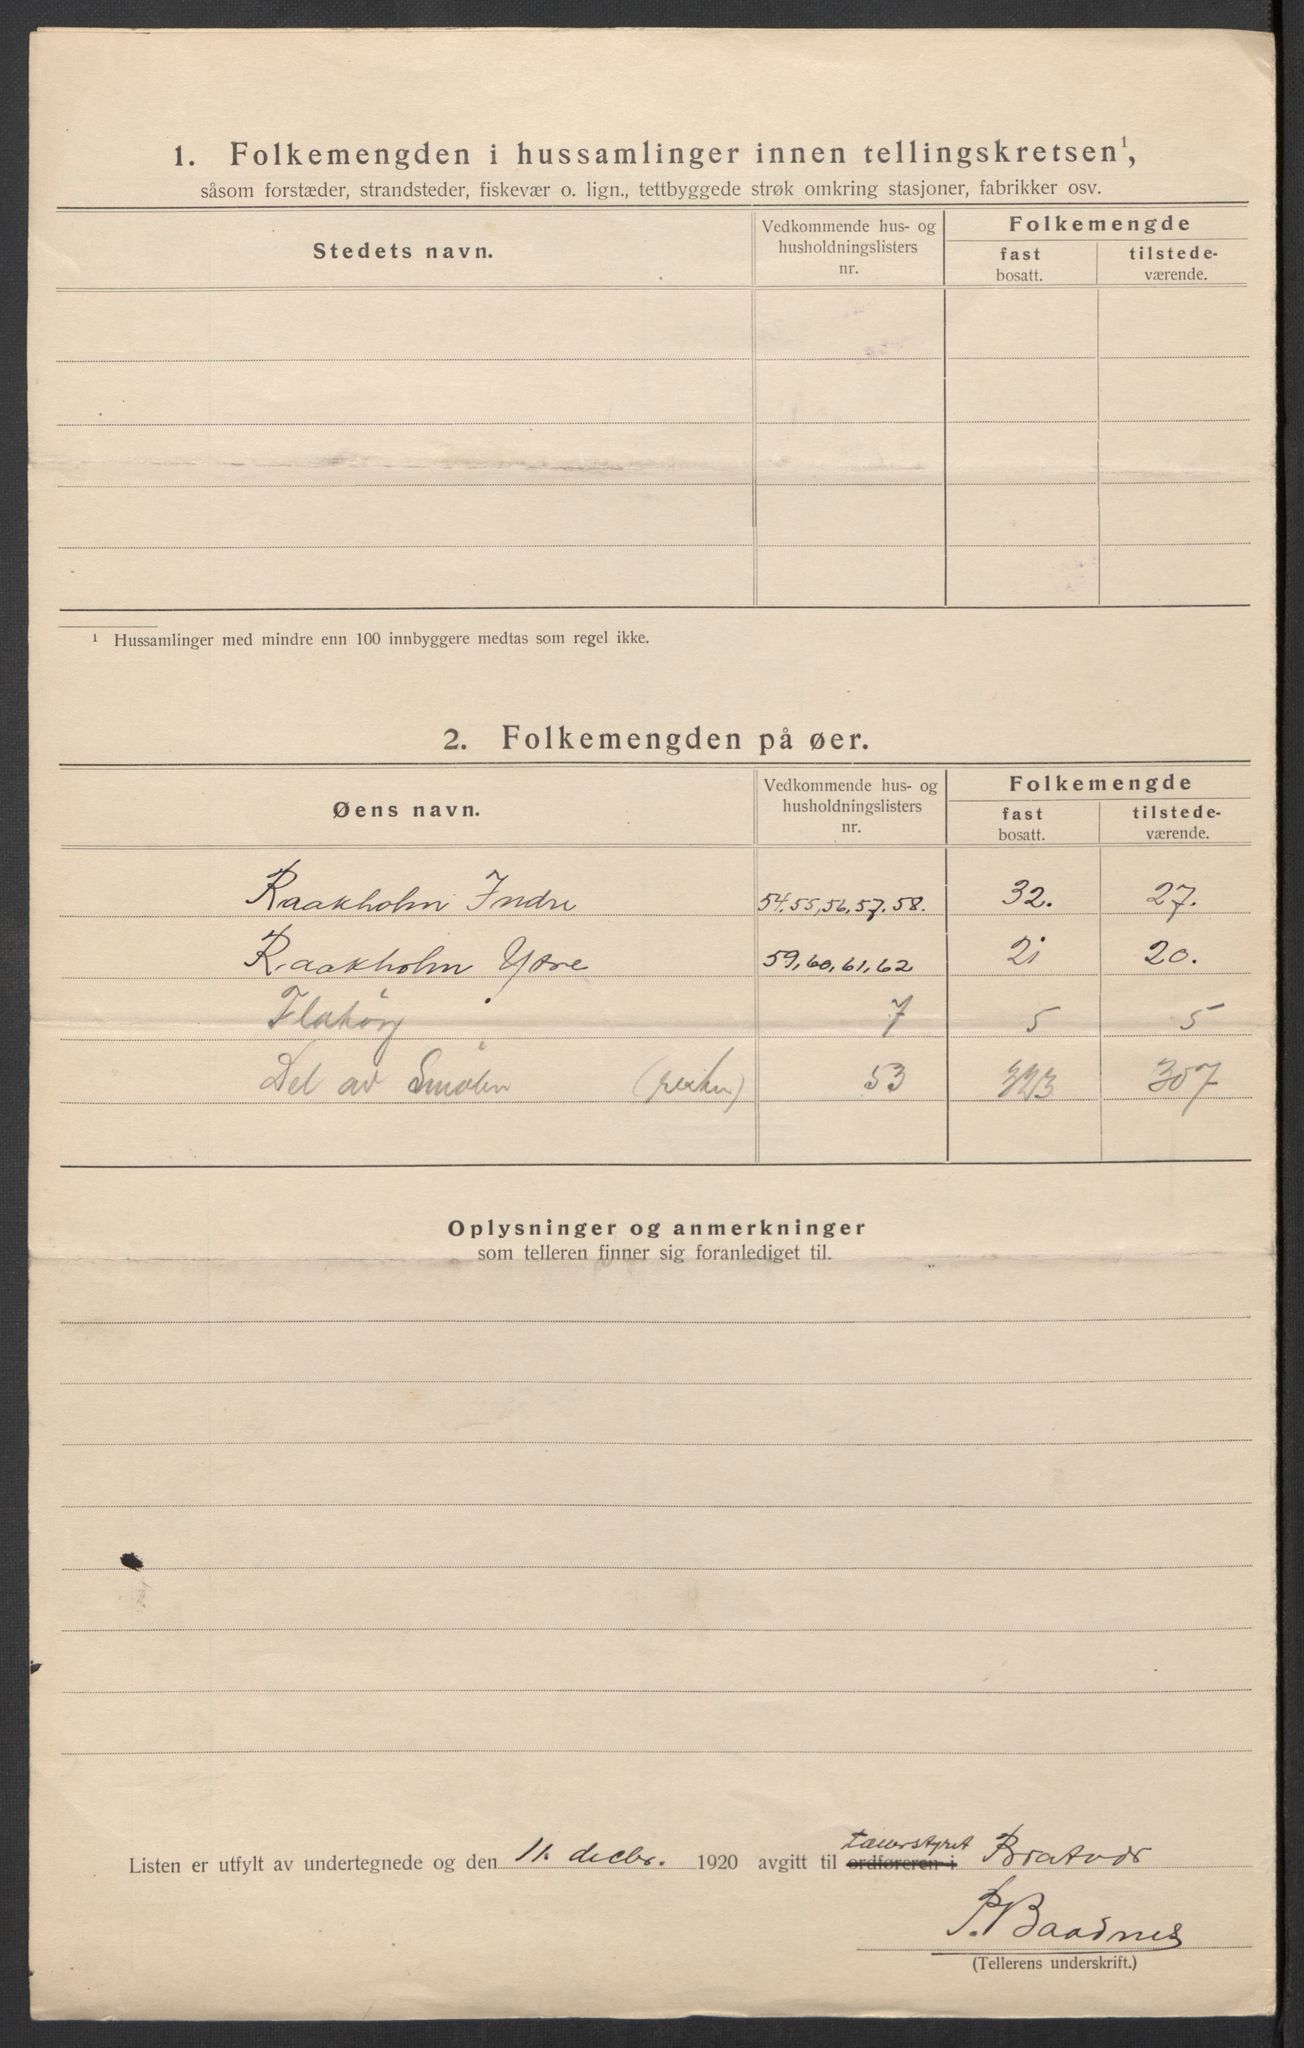 1. Folkemengden i hussamlinger innen tellingskretsen¹,
såsom forstæder, strandsteder, fiskevær o. lign., tettbyggede strøk omkring stasjoner, fabrikker osv.
Stedets navn.
Vedkommende hus- og husholdningslisters nr.
Folkemengde
fast bosatt.
tilstede-værende.
¹ Hussamlinger med mindre enn 100 innbyggere medtas som regel ikke.
2. Folkemengden på øer.
Øens navn.
Vedkommende hus- og husholdningslisters nr.
Folkemengde
fast bosatt.
tilstede-værende.
Raakholm Indre 54.55,56,57.58. 32. 27.
Raakholm Ytre 59,60,61,62 21 20.
Flatøy 7 5 5
Del av Smølen 53 323 307
Oplysninger og anmerkninger
som telleren finner sig foranlediget til.
Listen er utfylt av undertegnede og den 11. decbr. 1920 avgitt til ordføreren i Bratvær
P. Baadnes
(Tellerens underskrift.)